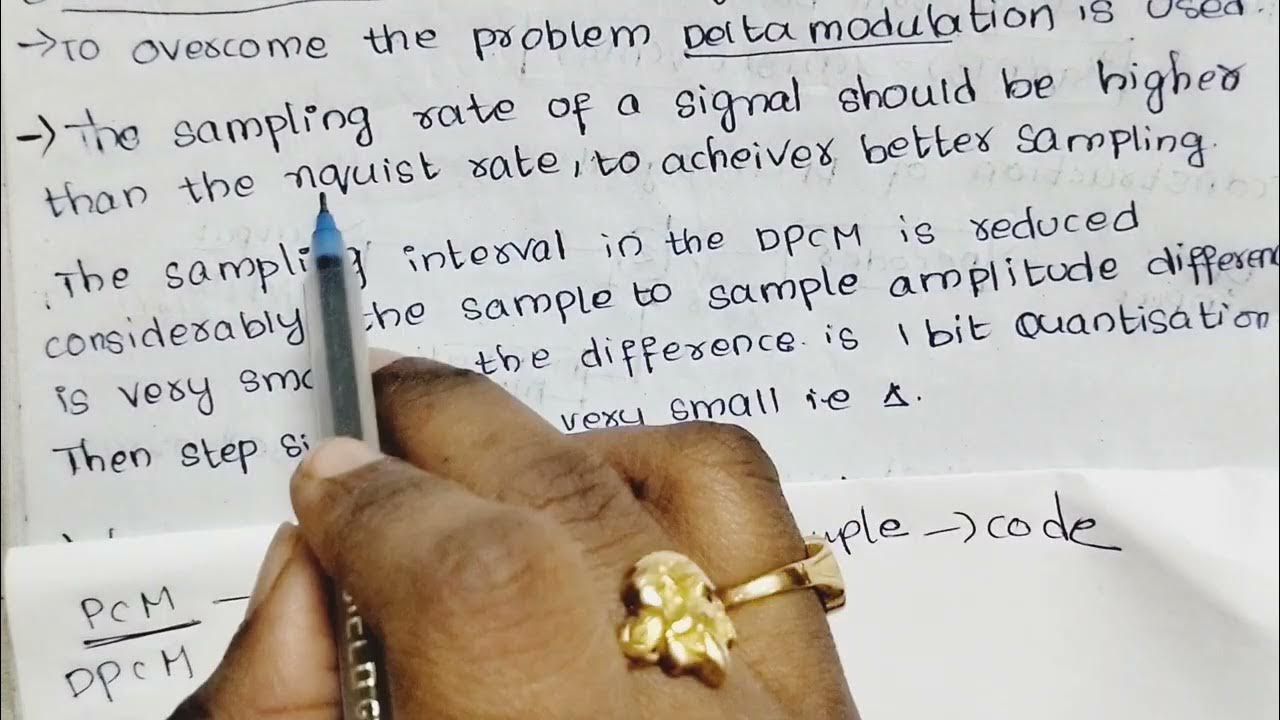 →To overcome the problem Delta modulation is used.
→ The sampling rate of a signal should be higher
than the nquist rate, to acheiver better sampling.
The sampling interval in the DPCM is reduced
considerably the sample to sample amplitude differenc
is very sma the difference is 1 bit Quantisation
Then step si very small i.e Δ.
mple → code
PCM —
DPCM